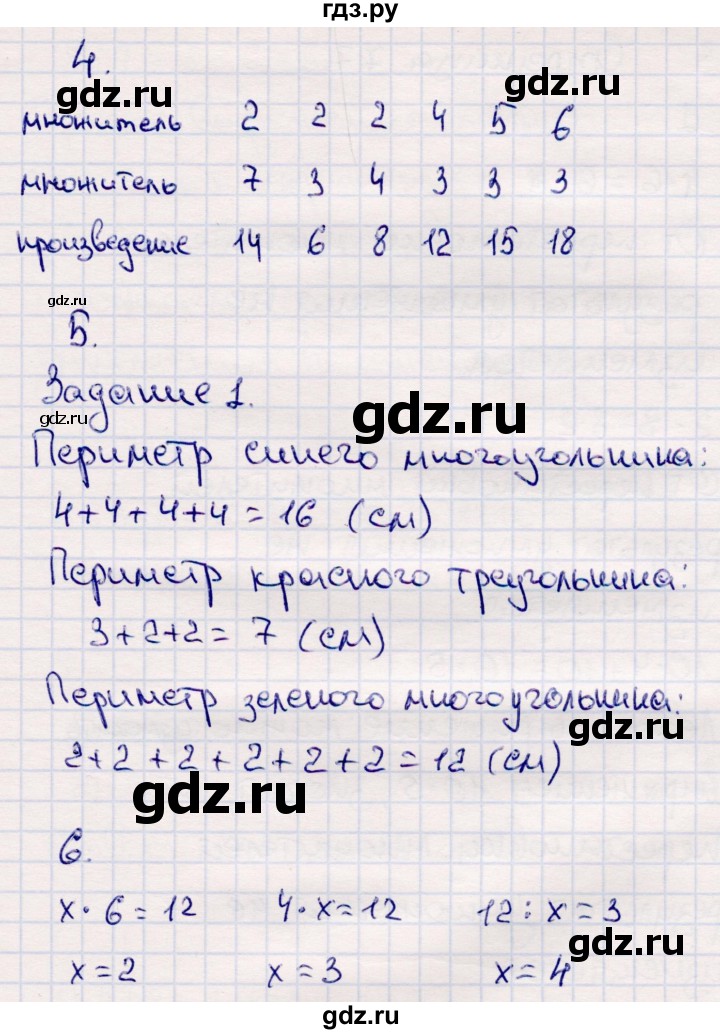 гдз.ру
4.
gdz.ru gdz.ru
множитель 2 2 2 4 5 6
множитель 7 3 4 3 3 3
произведение 14 6 8 12 15 18
gdz.ru
5.
Задание 1.
gdz.ru gdz.ru
Периметр синего многоугольника:
4+4+4+4=16 (см)
Периметр красного треугольника:
3+2+2=7 (см)
gdz.ru
Периметр зеленого многоугольника:
gdz.ru
2+2+2+2+2+2=12 (см)
gdz.ru
6.
x·6=12 4·x=12 12:x=3
gdz.ru
x=2 x=3 x=4
gdz.ru